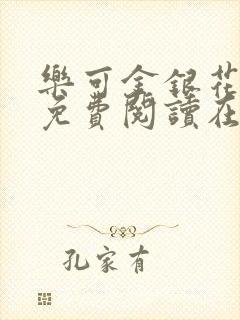 樂可金銀花
免費閱讀在
孔家有